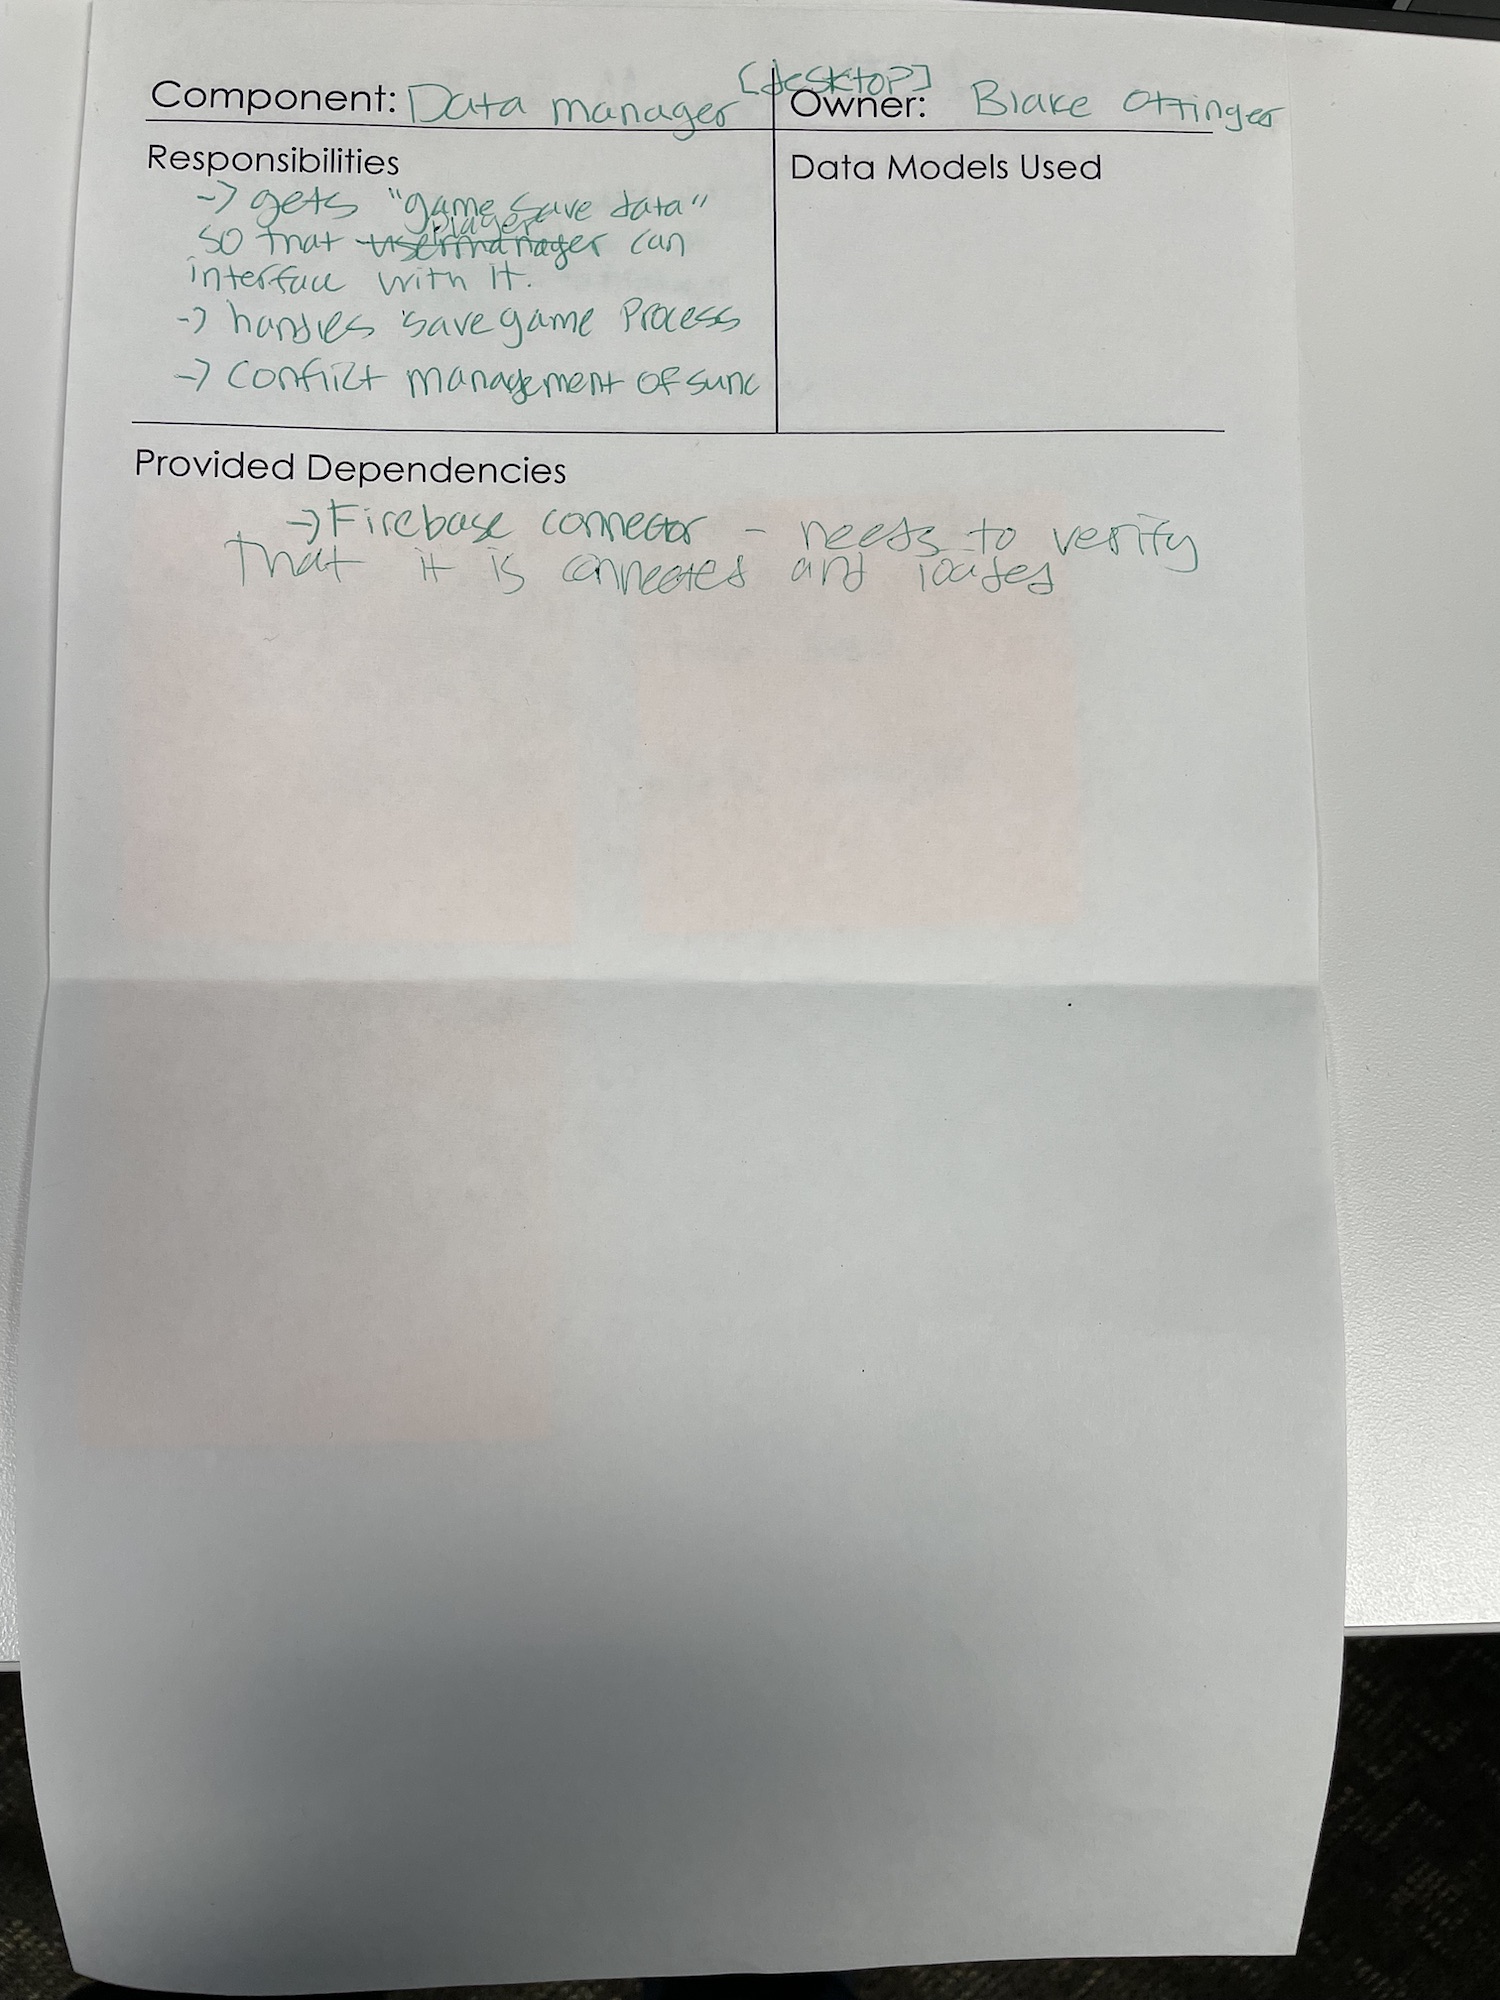 [desktop]
Component: Data manager Owner: Blake Ottinger
Responsibilities
-> gets "game save data"
player
so that usermanager can
interface with it.
-> handles save game process
-> conflict management of sync
Data Models Used
Provided Dependencies
-> Firebase connector - needs to verify
that it is connected and loaded